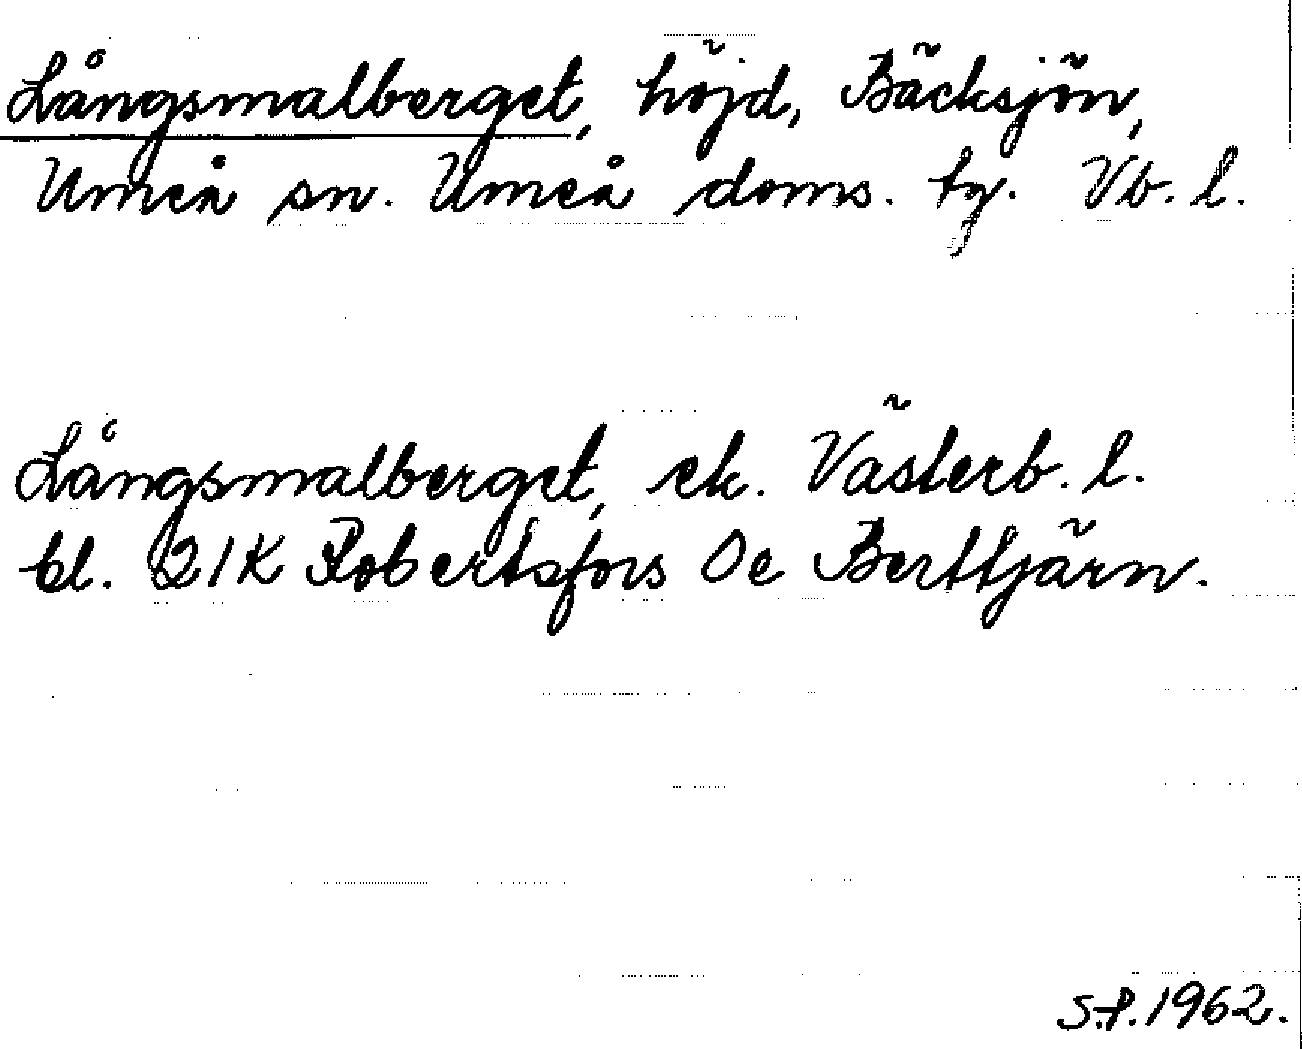 Långsmalberget, höjd, Bäcksjön,
Umeå sn. Umeå doms. tg. Vb. l.
Långsmalberget, ek. Västerb. l.
bl. 21K Robertsfors 0e Berttjärn.
S.P. 1962.